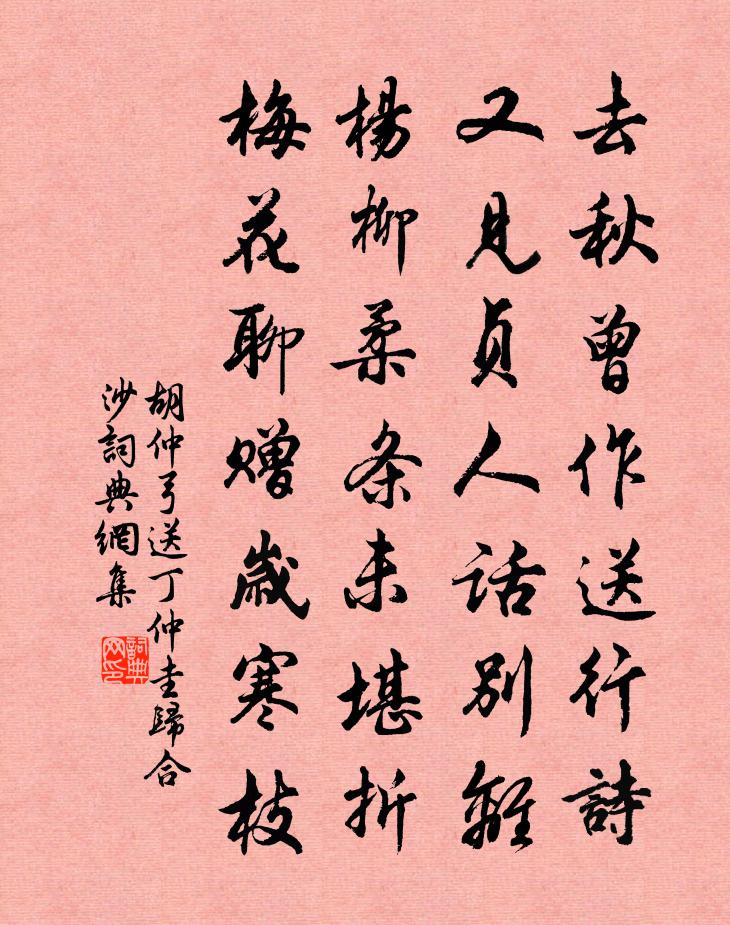 去秋曾作送行詩
又見貞人話別離
楊柳柔条未堪折
梅花聊赠歲寒枝
胡仲弓送丁仲圭歸合
沙詞典網集
詞典网印